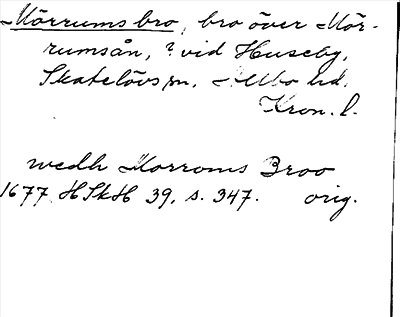 Mörrums bro, bro över Mör-
rumsån, ? vid Huseby,
Skatelövs sn, Allbo hd.
Kron. l.
wedh Morroms Broo
1677 HSkH 39, s. 347. orig.